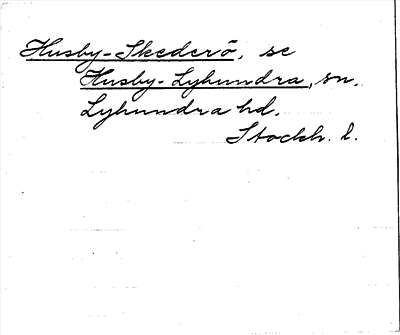 Husby-Skederö, se
Husby-Lyhundra, sn,
Lyhundra hd.
Stockh. l.